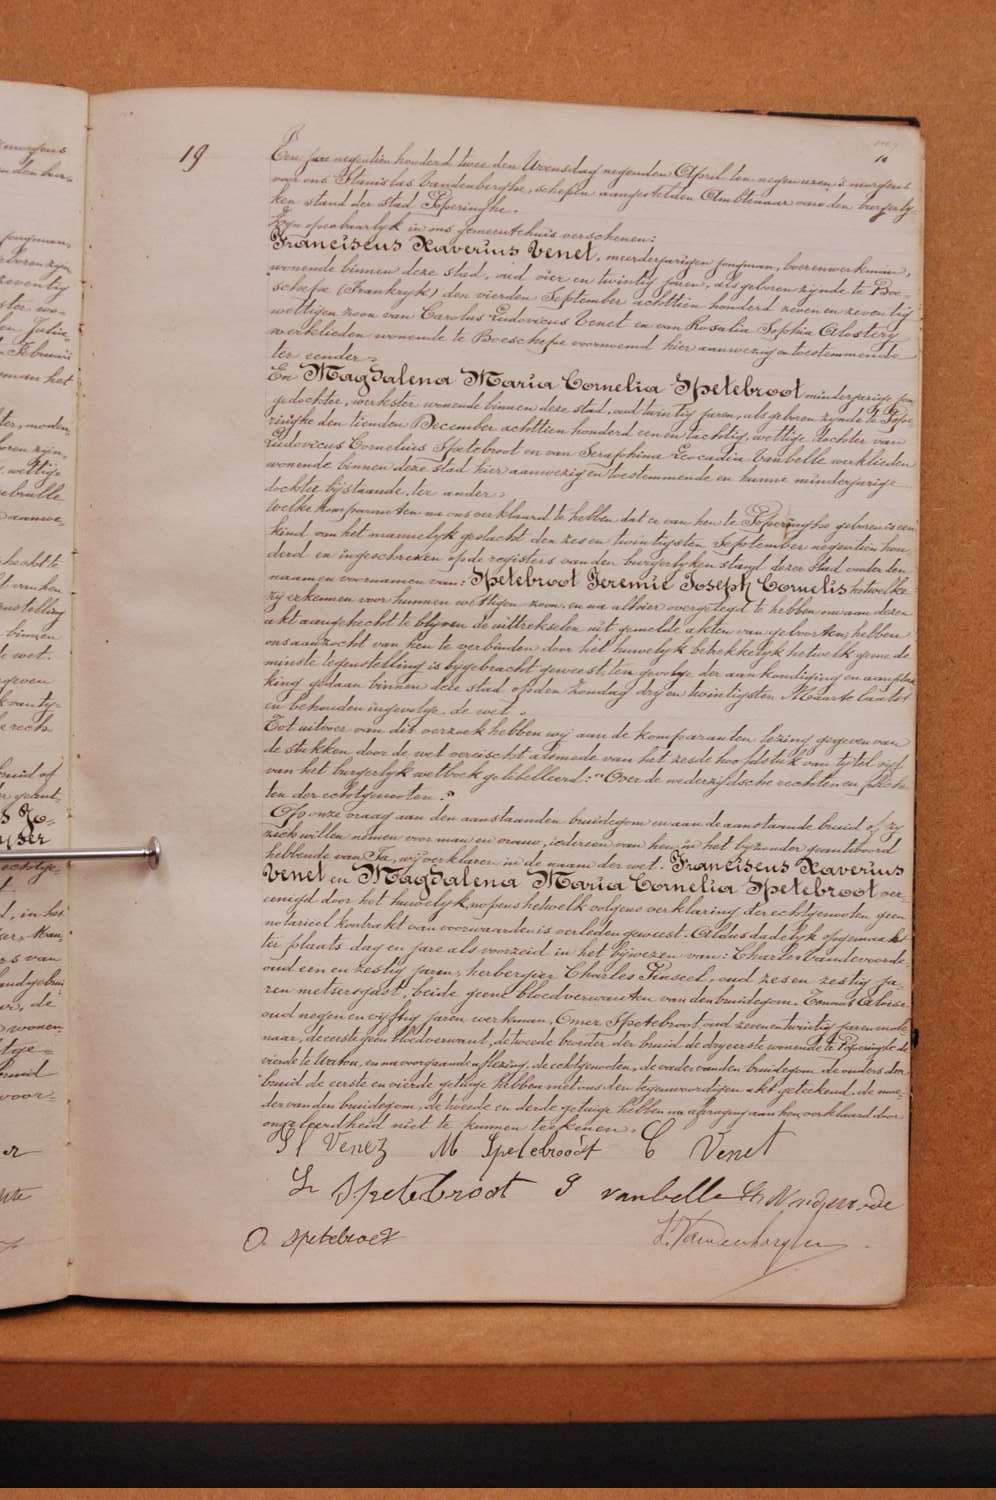 19
10
Een jare negentien honderd twee den Woensdag negenden April ten negen uren 's morgens
voor ons Stanislas Vandenberghe, schepen aangestelden Ambtenaar van den burgerly-
ken stand der stad Poperinghe.
Zyn openbaarlyk in ons gemeentehuis verschenen:
Franciscus Xaverius Venet, meerderjarigen jongman, boerenwerkman,
wonende binnen deze stad, oud vier en twintig jaren, als geboren zynde te Boe-
schepe (Frankryk) den vierden September achttien honderd zeven en zeventig
wettigen zoon van Carolus Ludovicus Venet en van Rosalia Sophia Clostery
werklieden wonende te Boeschepe voornoemd hier aanwezig en toestemmende
ter eender.
En Magdalena Maria Cornelia Spetebroot minderjarige jon-
gedochter, werkster wonende binnen deze stad, oud twintig jaren, als geboren zynde te Pope-
ringhe den tienden December achttien honderd een en tachtig, wettige dochter van
Ludovicus Cornelius Spetebroot en van Seraphina Leocadia Vanbelle werklieden
wonende binnen deze stad hier aanwezig en toestemmende en hunne minderjarige
dochter bijstaande, ter ander.
Welke komparanten na ons verklaard te hebben dat er van hen te Poperinghe geboren is een
kind van het mannelyk geslacht den zes en twintigsten September negentien hon-
derd en ingeschreven op de registers van den burgerlyken stand dezer stad onder den
naam en voornamen van: Spetebroot Jeremie Joseph Cornelis hetwelke
zy erkennen voor hunnen wettigen zoon, en na alhier overgelegd te hebben om aan dezen
akt aangehecht te blyven de uittrekselen uit gemelde akten van geboorten, hebben
ons aanzocht van hen te verbinden door het huwelyk betrekkelyk hetwelk geene de
minste tegenstelling is bygebracht geweest, ten gevolge der aankondiging en aanplak-
king gedaan binnen deze stad op den Zondag dry en twintigsten Maarte laatst
en behouden ingevolge de wet.
Tot uitvoer van dit verzoek hebben wij aan de komparanten lezing gegeven van
de stukken door de wet vereischt alsmede van het zesde hoofdstuk van tytel vyf
van het burgerlyk wetboek gelibelleerd: "Over de wederzijdsche rechten en plich-
ten der echtgenooten."
Op onze vraag aan den aanstaanden bruidegom en aan de aanstaande bruid of zy
zich willen nemen voor man en vrouw, iedereen van hen in het byzonder geantwoord
hebbende van Ja, wij verklaren in de naam der wet: Franciscus Xaverius
Venet en Magdalena Maria Cornelia Spetebroot ver-
eenigd door het huwelyk, nopens hetwelk volgens verklaring der echtgenooten geen
notarieel kontrakt van voorwaarden is verleden geweest. Aldus dadelyk opgemaakt
ter plaats dag en jare als voorzeid in het bijwezen van: Charles Vandevoorde
oud een en zestig jaren, herbergier Charles Pinseel, oud zes en zestig ja-
ren metsersgast, beide geene bloedverwanten van den bruidegom.
oud negen en vijftig jaren werkman, Omer Spetebroot, oud zeven en twintig jaren mole-
naar, de eerste geen bloedverwant, de tweede broeder der bruid de dry eerste wonende te Poperinghe de
vierde te Watou, en na voorgaande aflezing, de echtgenooten, de vader van den bruidegom de ouders der
bruid de eerste en vierde getuige hebben met ons den tegenwoordigen akt geteekend, de moe-
der van den bruidegom, de tweede en derde getuige hebben na afvraging aan hen, verklaard door
ongeleerdheid niet te kunnen teekenen.
Venez M Spetebroodt C Venet
Spetebroot S vanbelle
O Spetebroot